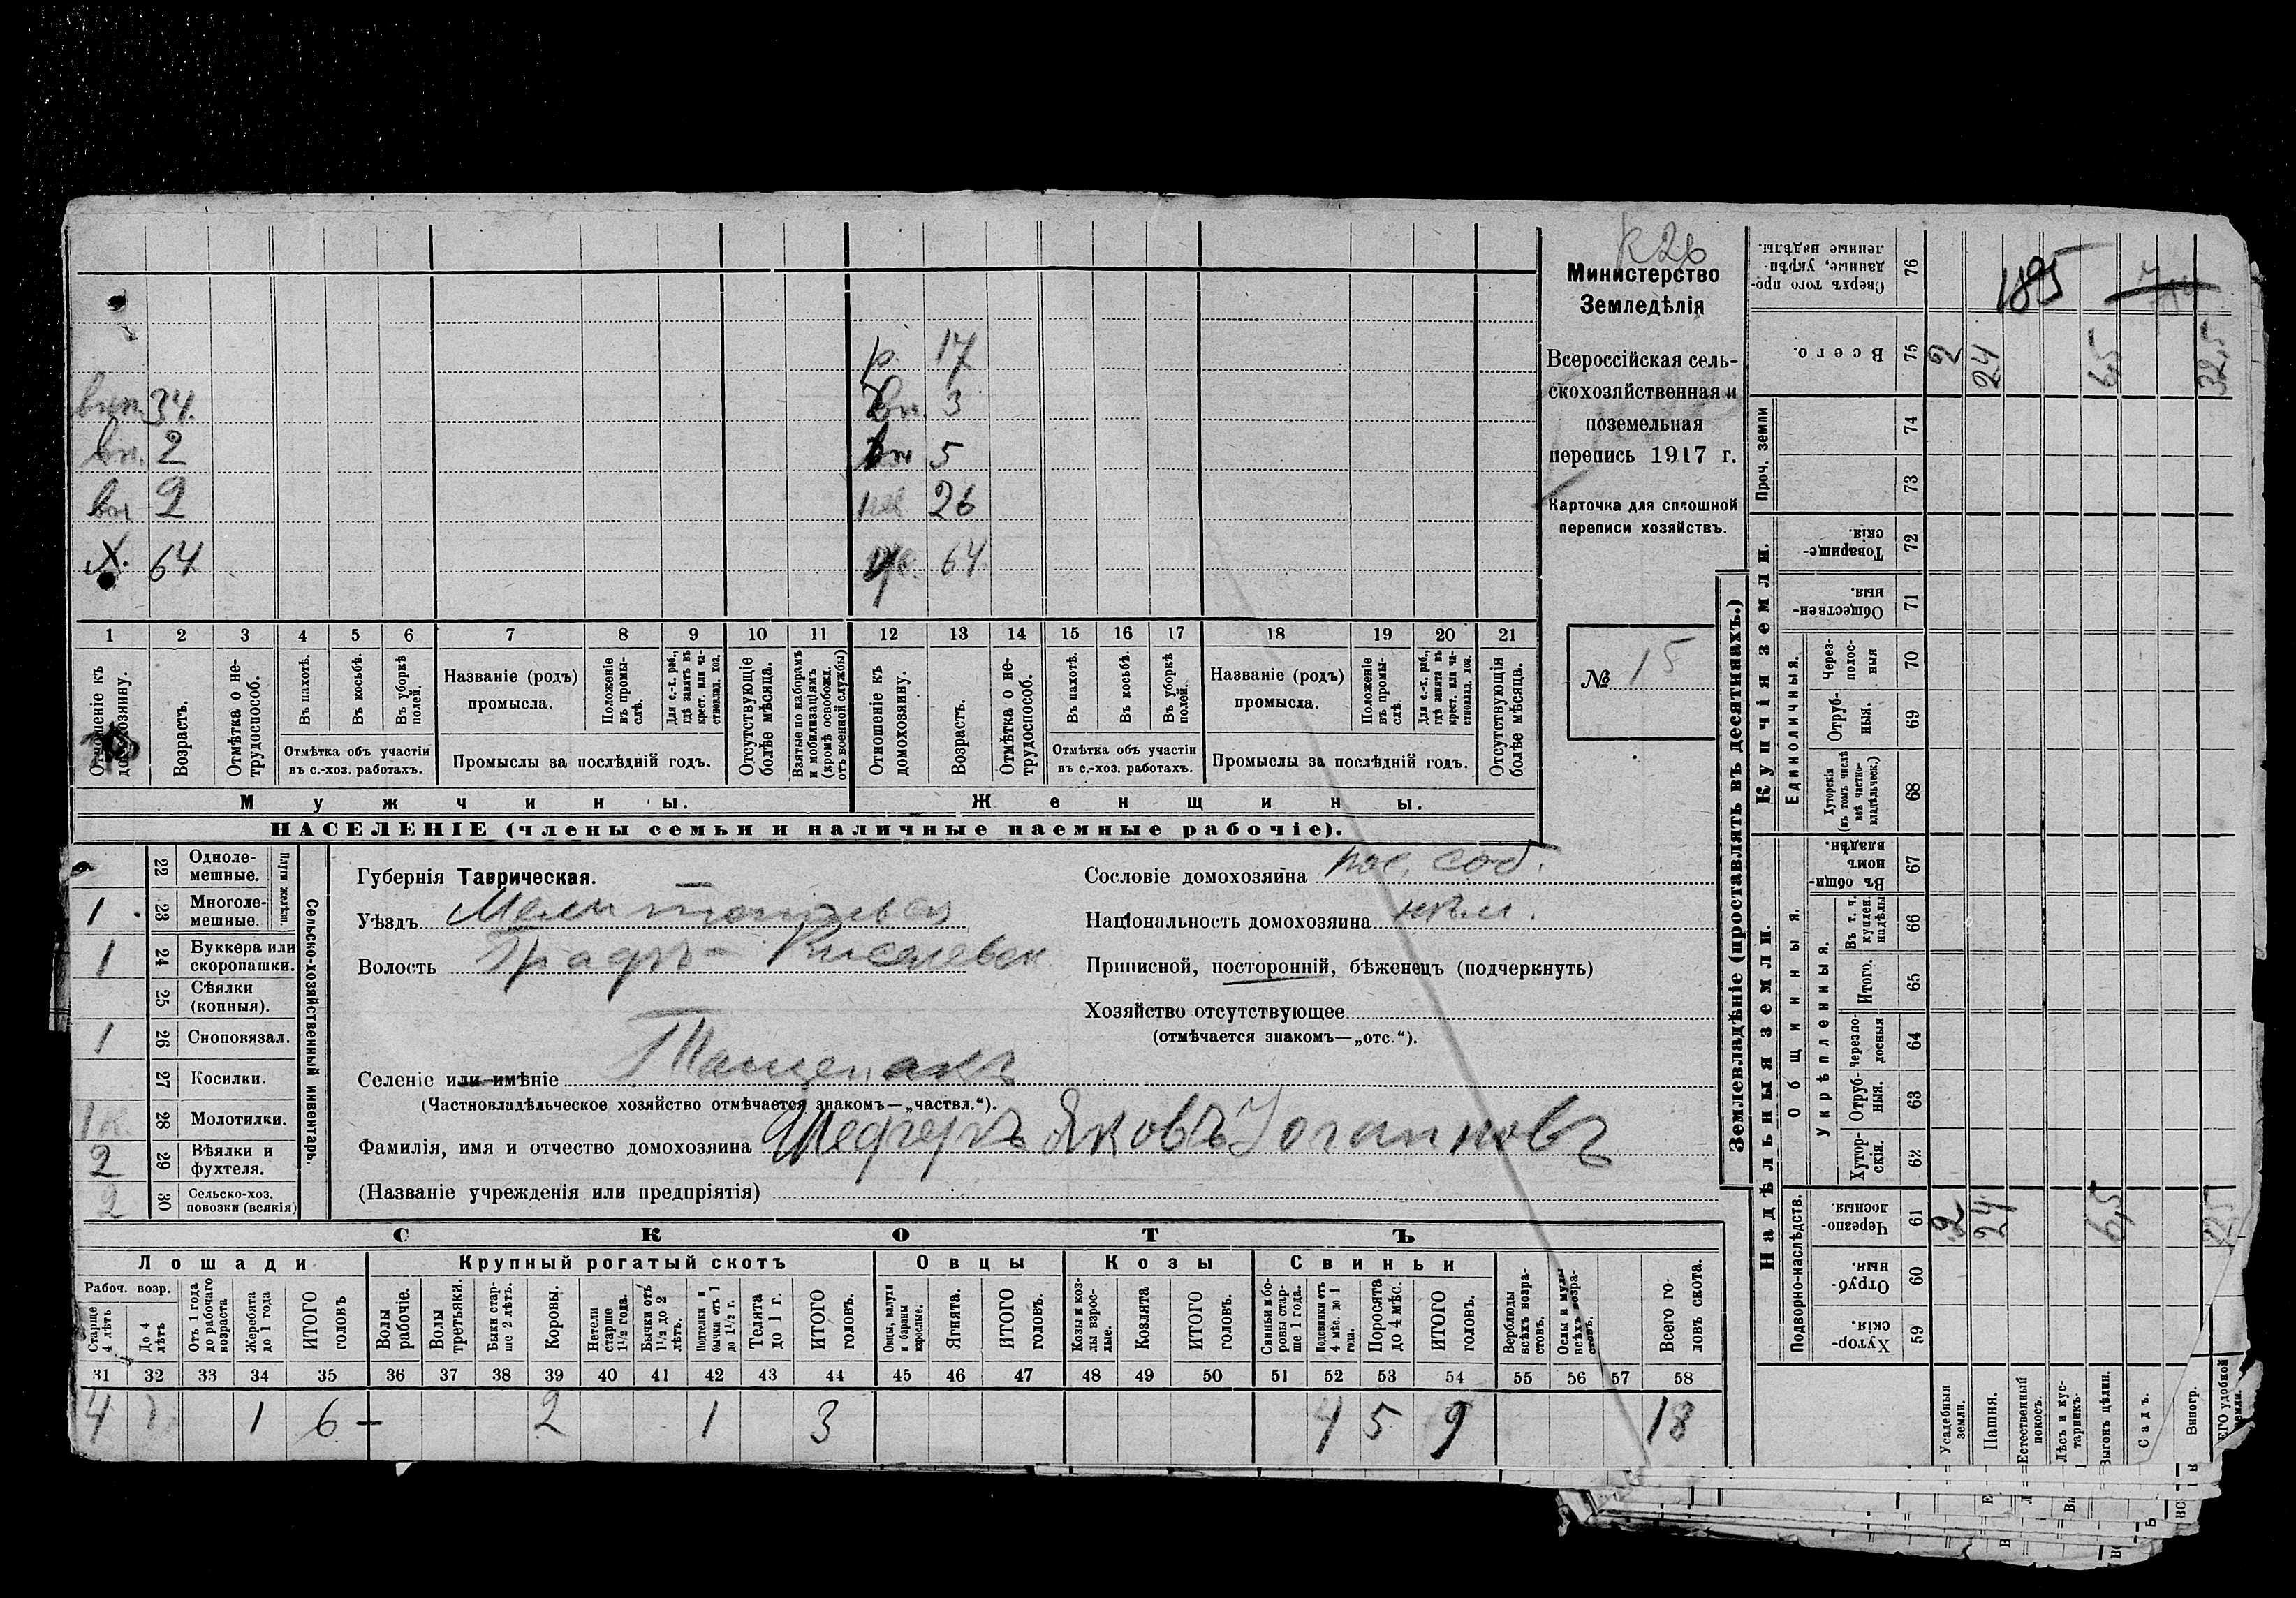 К 26
Министерство
Земледѣлія
Всероссійская сель-
скохозяйственная и
поземельная
перепись 1917 г.
Карточка для сплошной
переписи хозяйствъ.
№ 15
р. 17
34. вн. 3
вн. 2 вн 5
вн 2 26
Х. 64 64
1 2 3 4 5 6 7 8 9 10 11 12 13 14 15 16 17 18 19 20 21
Отношеніе къ домохозяину.
Возрастъ.
Отмѣтка о не-трудоспособ.
Въ пахотѣ.
Въ косьбѣ.
Въ уборкѣ полей.
Отмѣтка объ участіи
въ с.-хоз. работахъ.
Названіе (родъ)
промысла.
Положеніе въ промы-слѣ.
Для с.-х. раб., гдѣ занятъ въ крест. или ча-стновлад. хоз.
Промыслы за послѣдній годъ.
Отсутствующіе болѣе мѣсяца.
Взятые по наборамъ и мобилизаціямъ (кромѣ освобожд. отъ военной службы)
Отношеніе къ домохозяину.
Возрастъ.
Отмѣтка о не-трудоспособ.
Въ пахотѣ.
Въ косьбѣ.
Въ уборкѣ полей.
Отмѣтка объ участіи
въ с.-хоз. работахъ.
Названіе (родъ)
промысла.
Положеніе въ промы-слѣ.
Для с.-х. раб., гдѣ занята въ крест. или ча-стновлад. хоз.
Промыслы за послѣдній годъ.
Отсутствующія болѣе мѣсяца.
Мужчины. Женщины.
НАСЕЛЕНІЕ (члены семьи и наличные наемные рабочіе).
22 Одноле-мешные.
1 23 Многоле-мешные.
Плуги желѣзн.
1 24 Буккера или скоропашки.
25 Сѣялки (конныя).
1 26 Сноповязал.
27 Косилки.
1 к. 28 Молотилки.
2 29 Вѣялки и фухтеля.
2 30 Сельско-хоз. повозки (всякія)
Сельско-хозяйственный инвентарь.
Губернія Таврическая.
Уѣздъ Мелитопольскій
Волость Графъ-Киселевск
Селеніе или имѣніе Тащенакъ
(Частновладѣльческое хозяйство отмѣчается знакомъ—„частвл.“).
Фамилія, имя и отчество домохозяина Шеферъ Яковъ Іоганновъ
(Названіе учрежденія или предпріятія)
Сословіе домохозяина пос. соб.
Національность домохозяина нѣм.
Приписной, посторонній, бѣженецъ (подчеркнуть)
Хозяйство отсутствующее
(отмѣчается знакомъ—„отс.“).
СКОТЪ
Лошади Крупный рогатый скотъ Овцы Козы Свиньи
Рабоч. возр.
Старше 4 лѣтъ
До 4 лѣтъ
Отъ 1 года до рабочаго возраста
Жеребята до 1 года
ИТОГО головъ
Волы рабочіе.
Волы третьяки.
Быки стар-ше 2 лѣтъ.
Коровы.
Нетели старше 1½ года.
Бычки отъ 1½ до 2 лѣтъ.
Подтелки и бычки отъ 1 до 1½ г.
Телята до 1 г.
ИТОГО головъ.
Овцы, валухи и бараны взрослые.
Ягнята.
ИТОГО головъ.
Козы и коз-лы взрос-лые.
Козлята
ИТОГО головъ.
Свиньи и бо-ровы стар-ше 1 года.
Подсвинки отъ 4 мѣс. до 1 года.
Поросята до 4 мѣс.
ИТОГО головъ.
Верблюды всѣхъ возра-стовъ.
Ослы и мулы всѣхъ возра-стовъ.
Всего го-ловъ скота.
31 32 33 34 35 36 37 38 39 40 41 42 43 44 45 46 47 48 49 50 51 52 53 54 55 56 57 58
4 1 6 2 1 3 4 5 9 18
Землевладѣніе (проставлять въ десятинахъ.)
Купчія земли.
Надѣльныя земли.
Сверхъ того про-данные, укрѣп-ленные надѣлы. 76 185
Всего. 75 2 24 6,5 32,5
Проч. земли 74 73
Товарище-скія. 72
Обществен-ныя. 71
Единоличныя.
Через-полос-ныя 70
Отруб-ныя. 69
Хуторскія (въ томъ числѣ всѣ частно-владѣльческ.) 68
Общинныя.
Въ общин-номъ владѣн. 67
Укрѣпленныя.
Въ т. ч. куплен. надѣлы 66
Итого. 65
Черезпо-лосныя 64
Отруб-ныя. 63
Хутор-скія. 62
Подворно-наслѣдств.
Черезпо-лосныя. 61 2 24 6,5
Отруб-ныя. 60
Хутор-скія. 59
Усадебныя земли.
Пашня.
Естественный покосъ.
Лѣсъ и кус-тарникъ.
Выгонъ цѣлин.
Садъ.
Виногр.
ЕГО удобной земли.